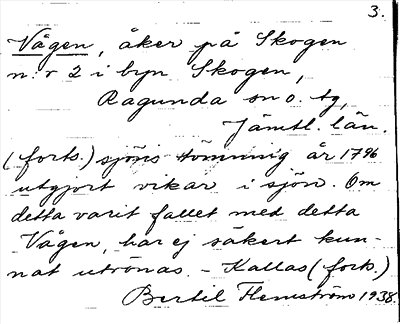 3.
Vågen, åker på Skogen
n:r 2 i byn Skogen,
Ragunda sn o. tg,
Jämtl. län.
(forts.) sjöns tömning år 1796
utgjort vikar i sjön. Om
detta varit fallet med detta
Vågen, har ej säkert kun-
nat utrönas. - Kallas (forts.)
Bertil Flemström 1938.